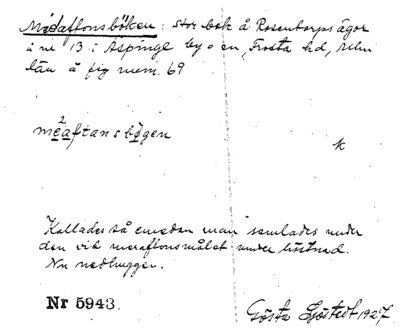 Medaftonsböken: Stor bok å Rosentorps ägor
å nr 13 i Aspinge by o en, Frosta hd, Malm
län å fig num. 69
meaftansbögen
k
Kallades så emedan man samlades under
den vid meraftonsmålet under höstnad.
Nu nedhuggen.
Nr 5943.
Gösta Sjöstedt 1927.